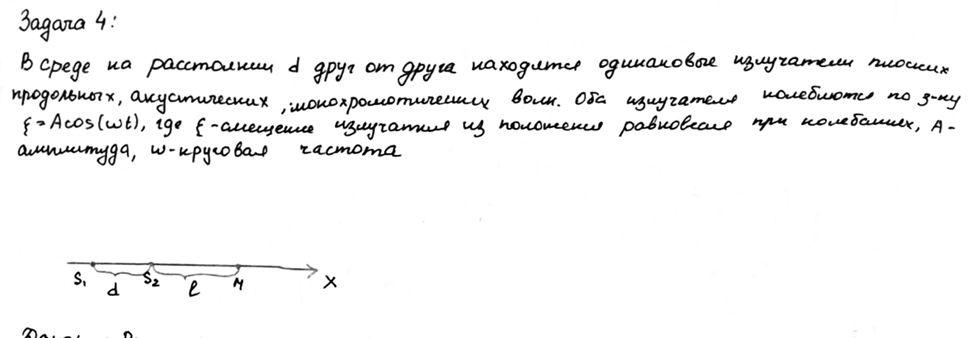 Задача 4:
В среде на расстоянии d друг от друга находятся одинаковые излучатели плоских
продольных, акустических, монохроматических волн. Оба излучателя колеблются по з-ну
ξ=Acos(ωt), где ξ-смещение излучателя из положения равновесия при колебаниях, A-
амплитуда, ω-круговая частота
S₁ d S₂ l M X